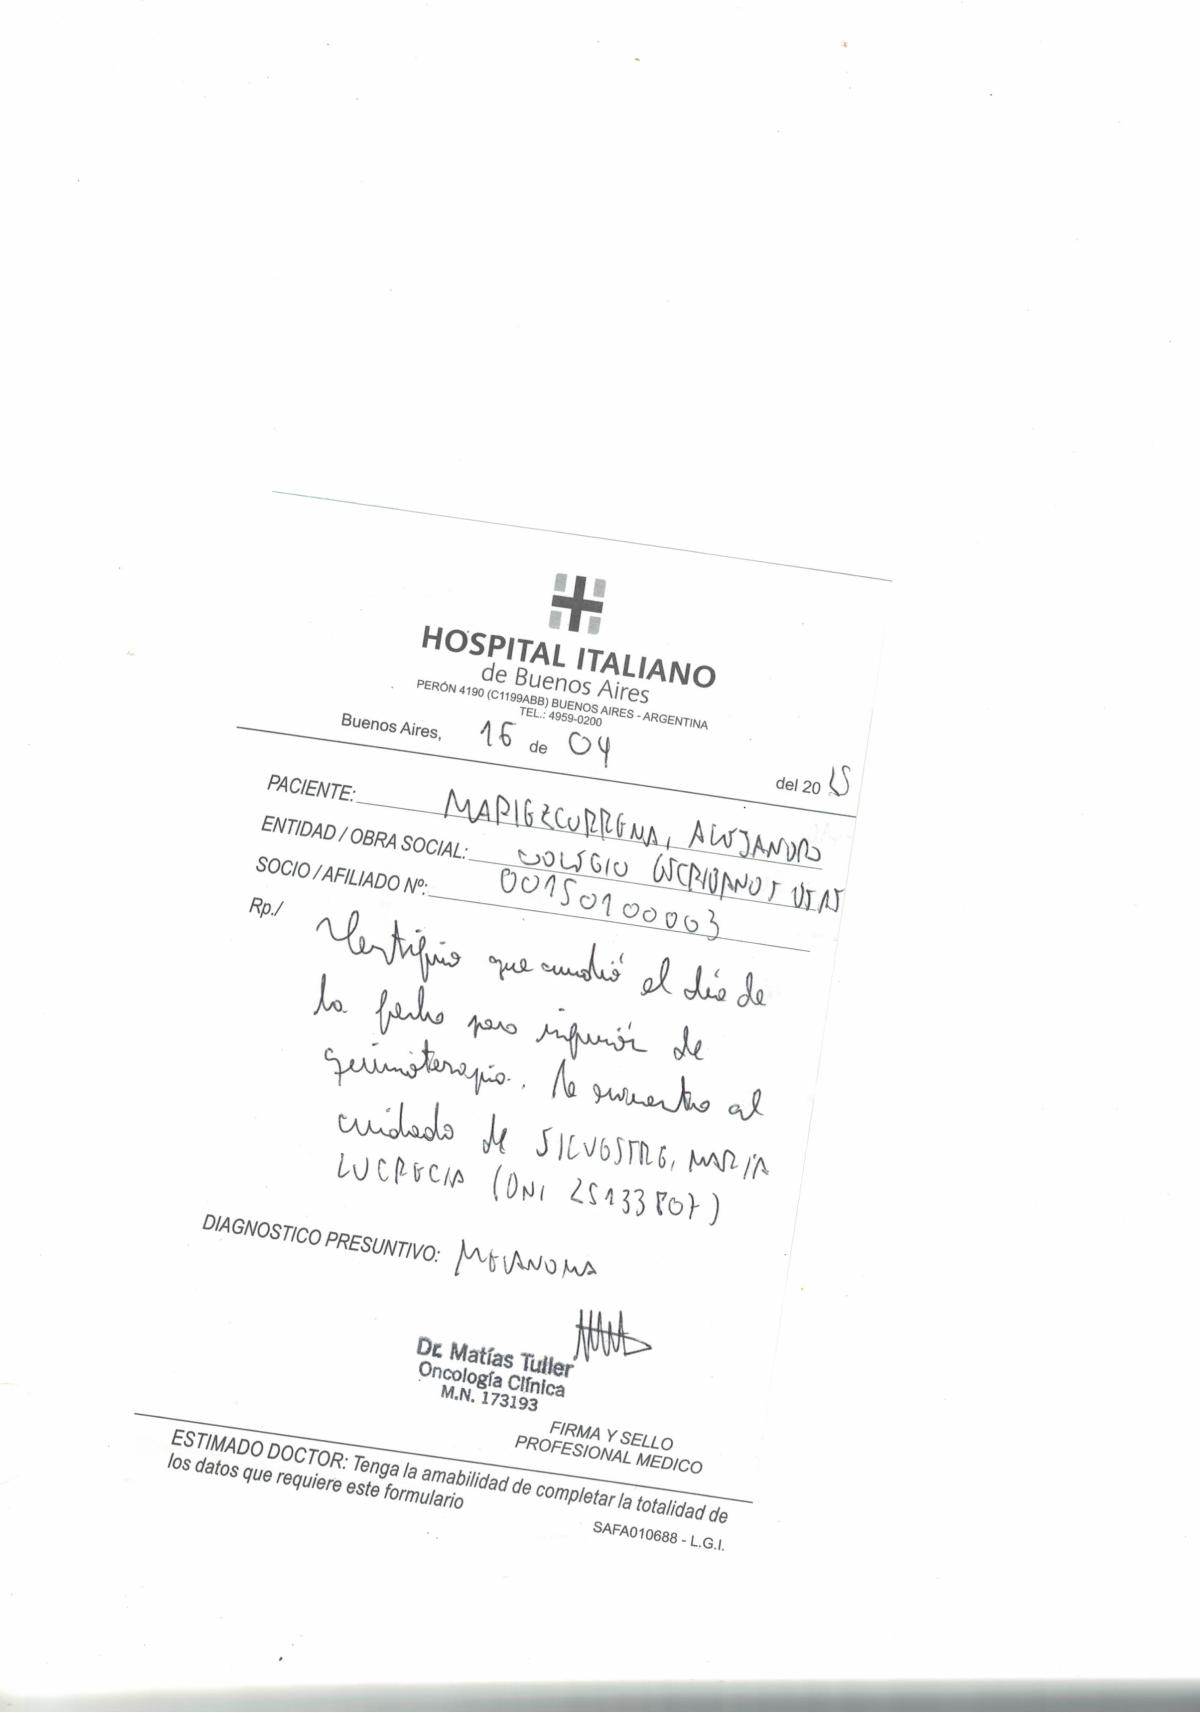 HOSPITAL ITALIANO
de Buenos Aires
PERÓN 4190 (C1199ABB) BUENOS AIRES - ARGENTINA
TEL.: 4959-0200
Buenos Aires, 16 de 04 del 20 25
PACIENTE: MARIEZCURRENA, ALEJANDRO
ENTIDAD / OBRA SOCIAL: COLEGIO ESCRIBANOS
SOCIO / AFILIADO Nº: 00150100003
Rp./ Certifico que acudió el día de
la fecha para infusión de
quimioterapia. Se encuentra al
cuidado de SILVESTRE, MARIA
LUCRECIA (DNI 25133807)
DIAGNOSTICO PRESUNTIVO: MELANOMA
Dr. Matías Tuller
Oncología Clínica
M.N. 173193
FIRMA Y SELLO
PROFESIONAL MEDICO
ESTIMADO DOCTOR: Tenga la amabilidad de completar la totalidad de
los datos que requiere este formulario
SAFA010688 - L.G.I.